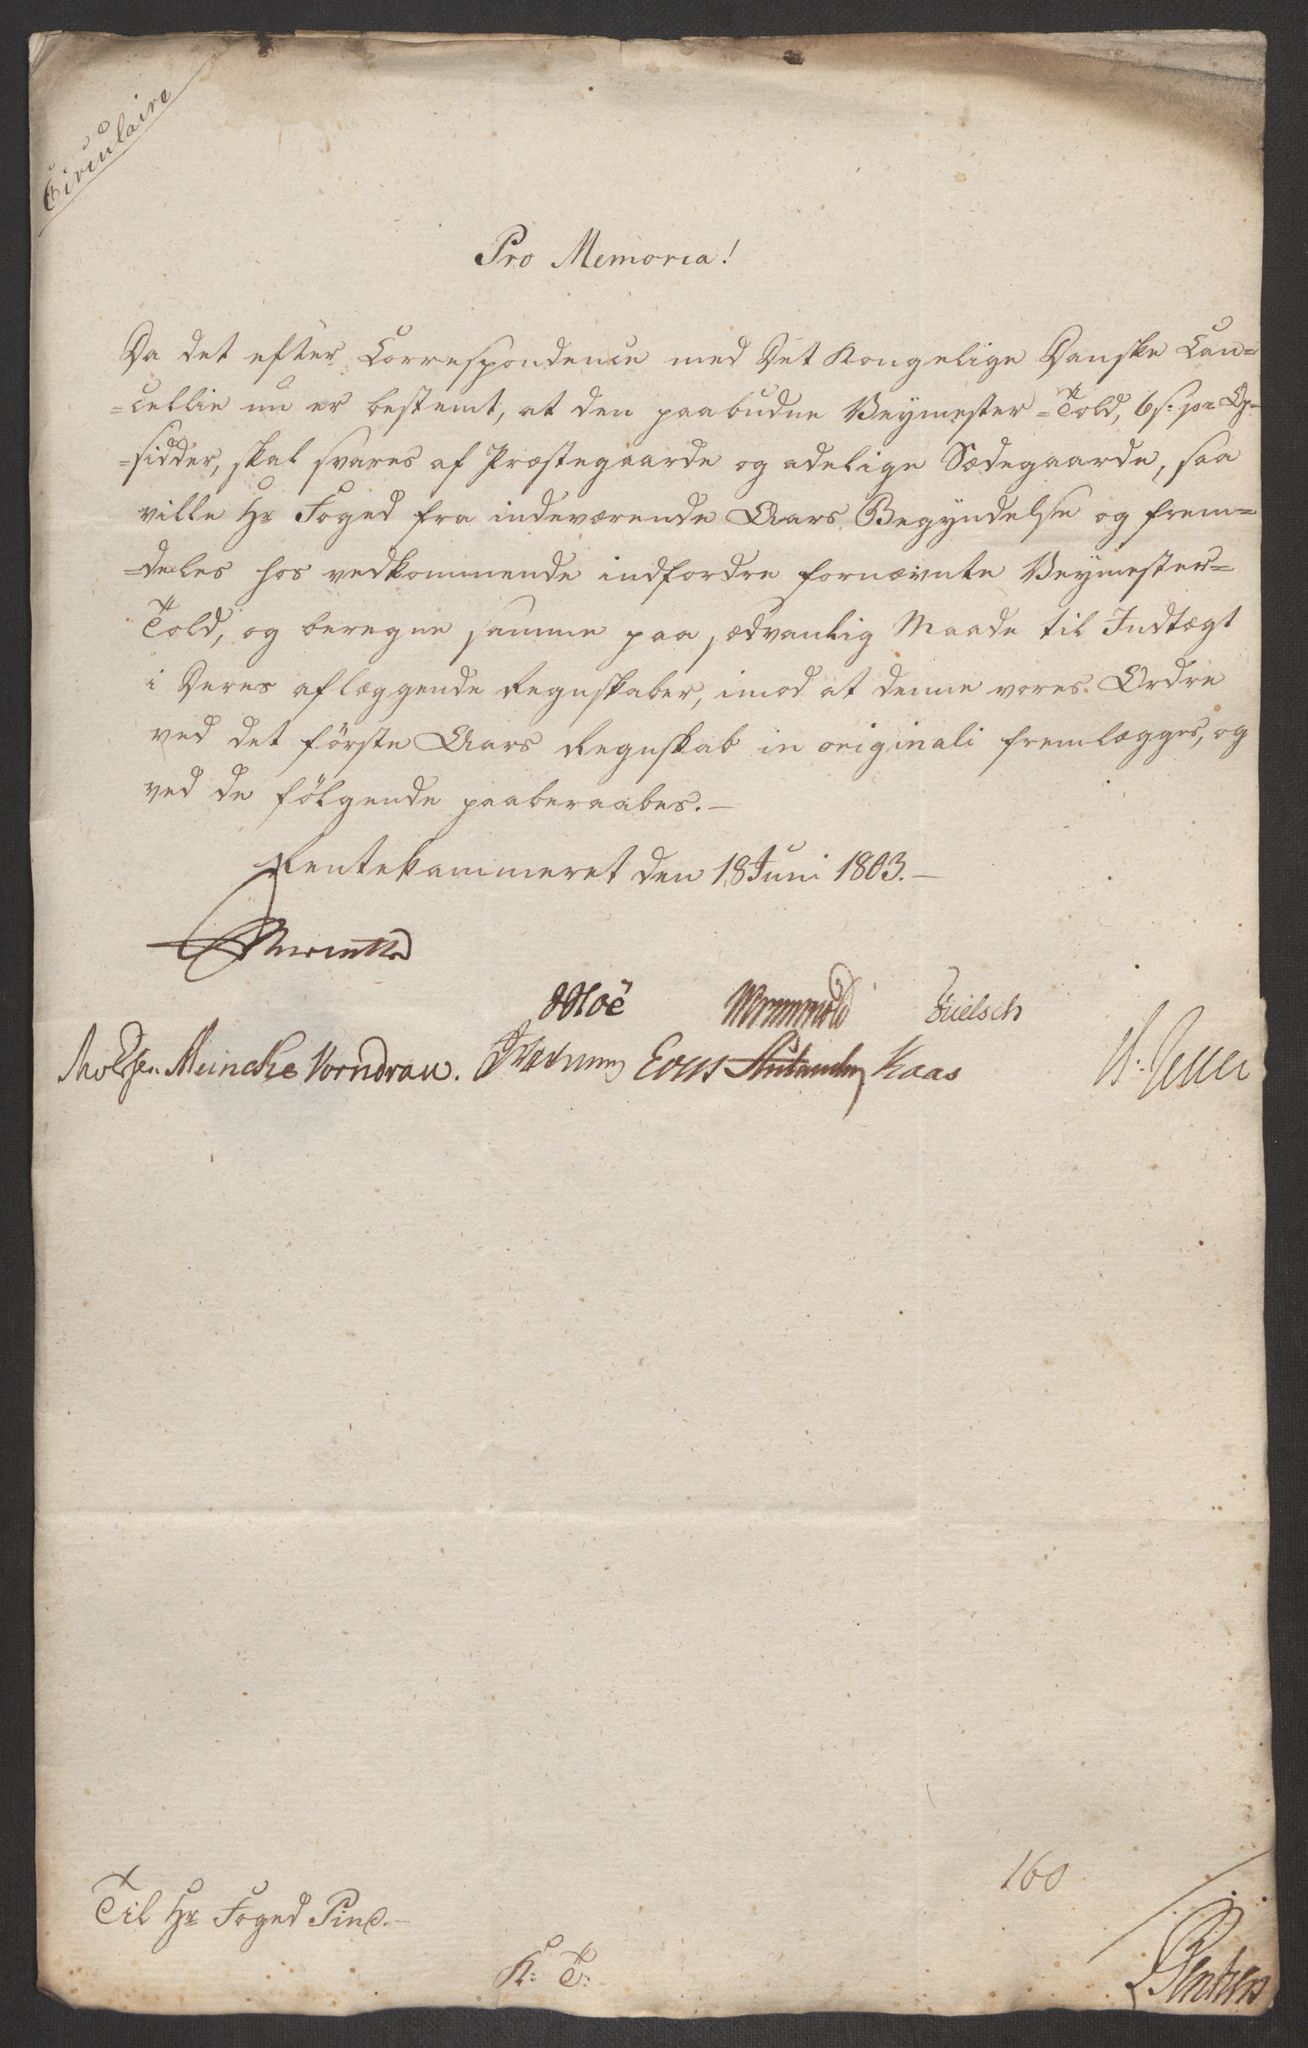 Circulaire
Pro Memoria!
Da det efter Correspondence med Det Kongelige Danske Can=
=cellie nu er bestemt, at den paabudne Veymester=Told, 6 s: pr Op=
=sidder, skal svares af Præstegaarde og adelige Sædegaarde, saa
ville Hr Foged fra indeværende Aars Begyndelse og frem=
=deles hos vedkommende indfordre fornævnte Veymester=
Told, og beregne samme paa sædvanlig Maade til Indtægt
i Deres aflæggende Regnskaber, imod at denne vores Ordre
ved det förste Aars Regnskab in originali fremlægges, og
ved de fölgende paaberaabes.—
Rentekammeret den 18 Juni 1803.—
Meincke Vorndran. Kaas
160
Til Hr Foged Pind.—
K: T: